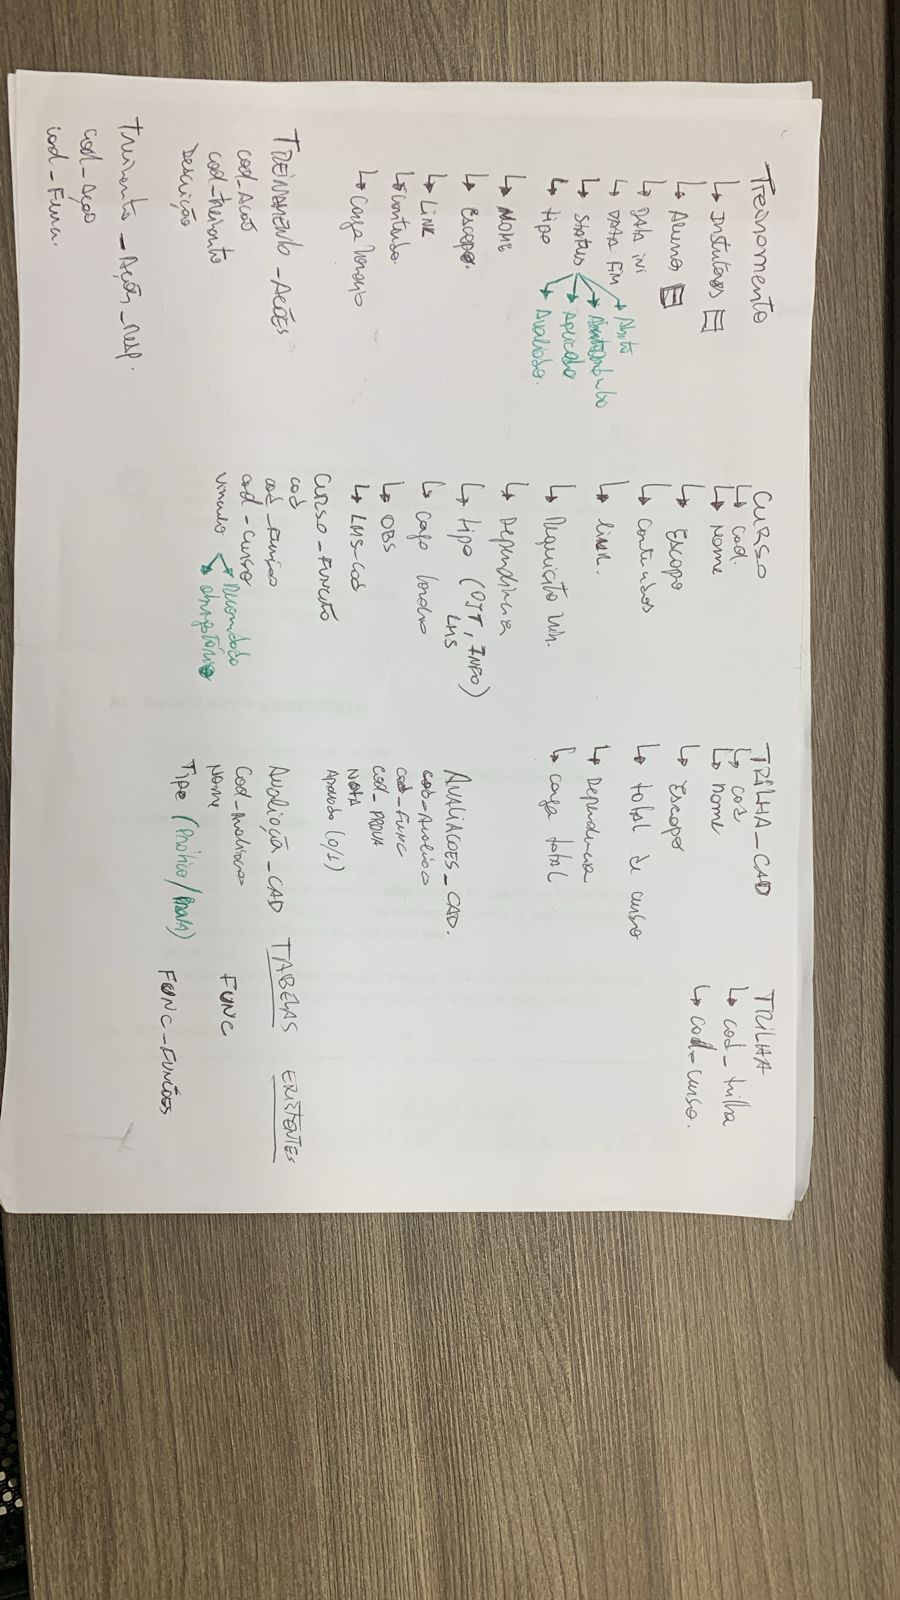 Treinamento
↳ Instrutores
↳ Alunos
↳ Data ini
↳ Data Fim
↳ Status
Aberto
Aplicado
Avaliado.
↳ tipo
↳ Nome
↳ Escopo.
↳ Link
↳ Conteudo.
↳ Carga horaria
TREINAMENTO_AÇÕES
cod_Ação
cod_treinamento
Descrição
Treinamento_Ações_Resp.
cod_Ação
cod_Func.
CURSO
↳ cod.
↳ Nome
↳ Escopo
↳ Conteudos
↳ Link.
↳ Requisito Min.
↳ Dependencia
↳ tipo (OJT, INFO)
LMS
↳ Carga horaria
↳ OBS
↳ LMS_cod
CURSO_FUNÇÃO
cod
cod_Função
cod_curso
vinculo
Recomendado
obrigatório
TRILHA_CAD
↳ cod
↳ nome
↳ Escopo
↳ total de curso
↳ Dependencia
↳ Carga total
AVALIACOES_CAD.
cod_Avaliacao
cod_Func
cod_PROVA
NOTA
Aprovado (0/1)
Avaliação_CAD
Cod_Avaliacao
Nome
Tipo (Prática/Prova)
TRILHA
↳ cod_trilha
↳ cod_curso.
TABELAS EXISTENTES
FUNC
FUNC_FUNÇÕES